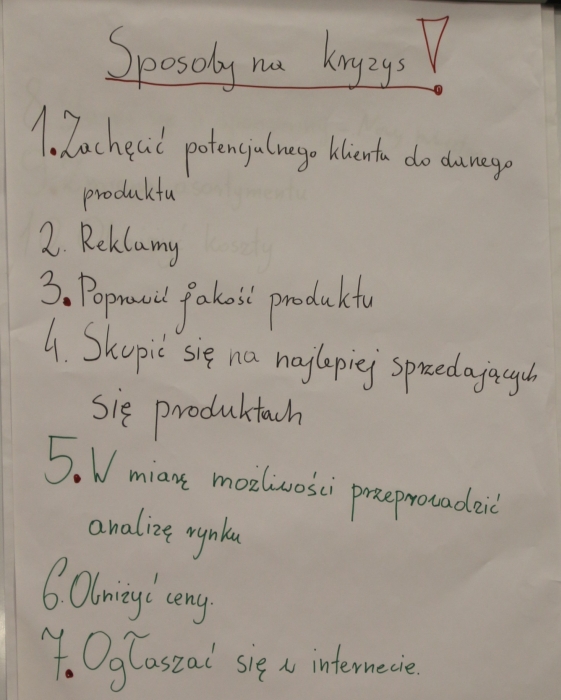 Sposoby na kryzys!
1. Zachęcić potencjalnego klienta do danego
produktu
2. Reklamy
3. Poprawić jakość produktu
4. Skupić się na najlepiej sprzedających
się produktach
5. W miarę możliwości przeprowadzić
analizę rynku
6. Obniżyć ceny.
7. Ogłaszać się w internecie.